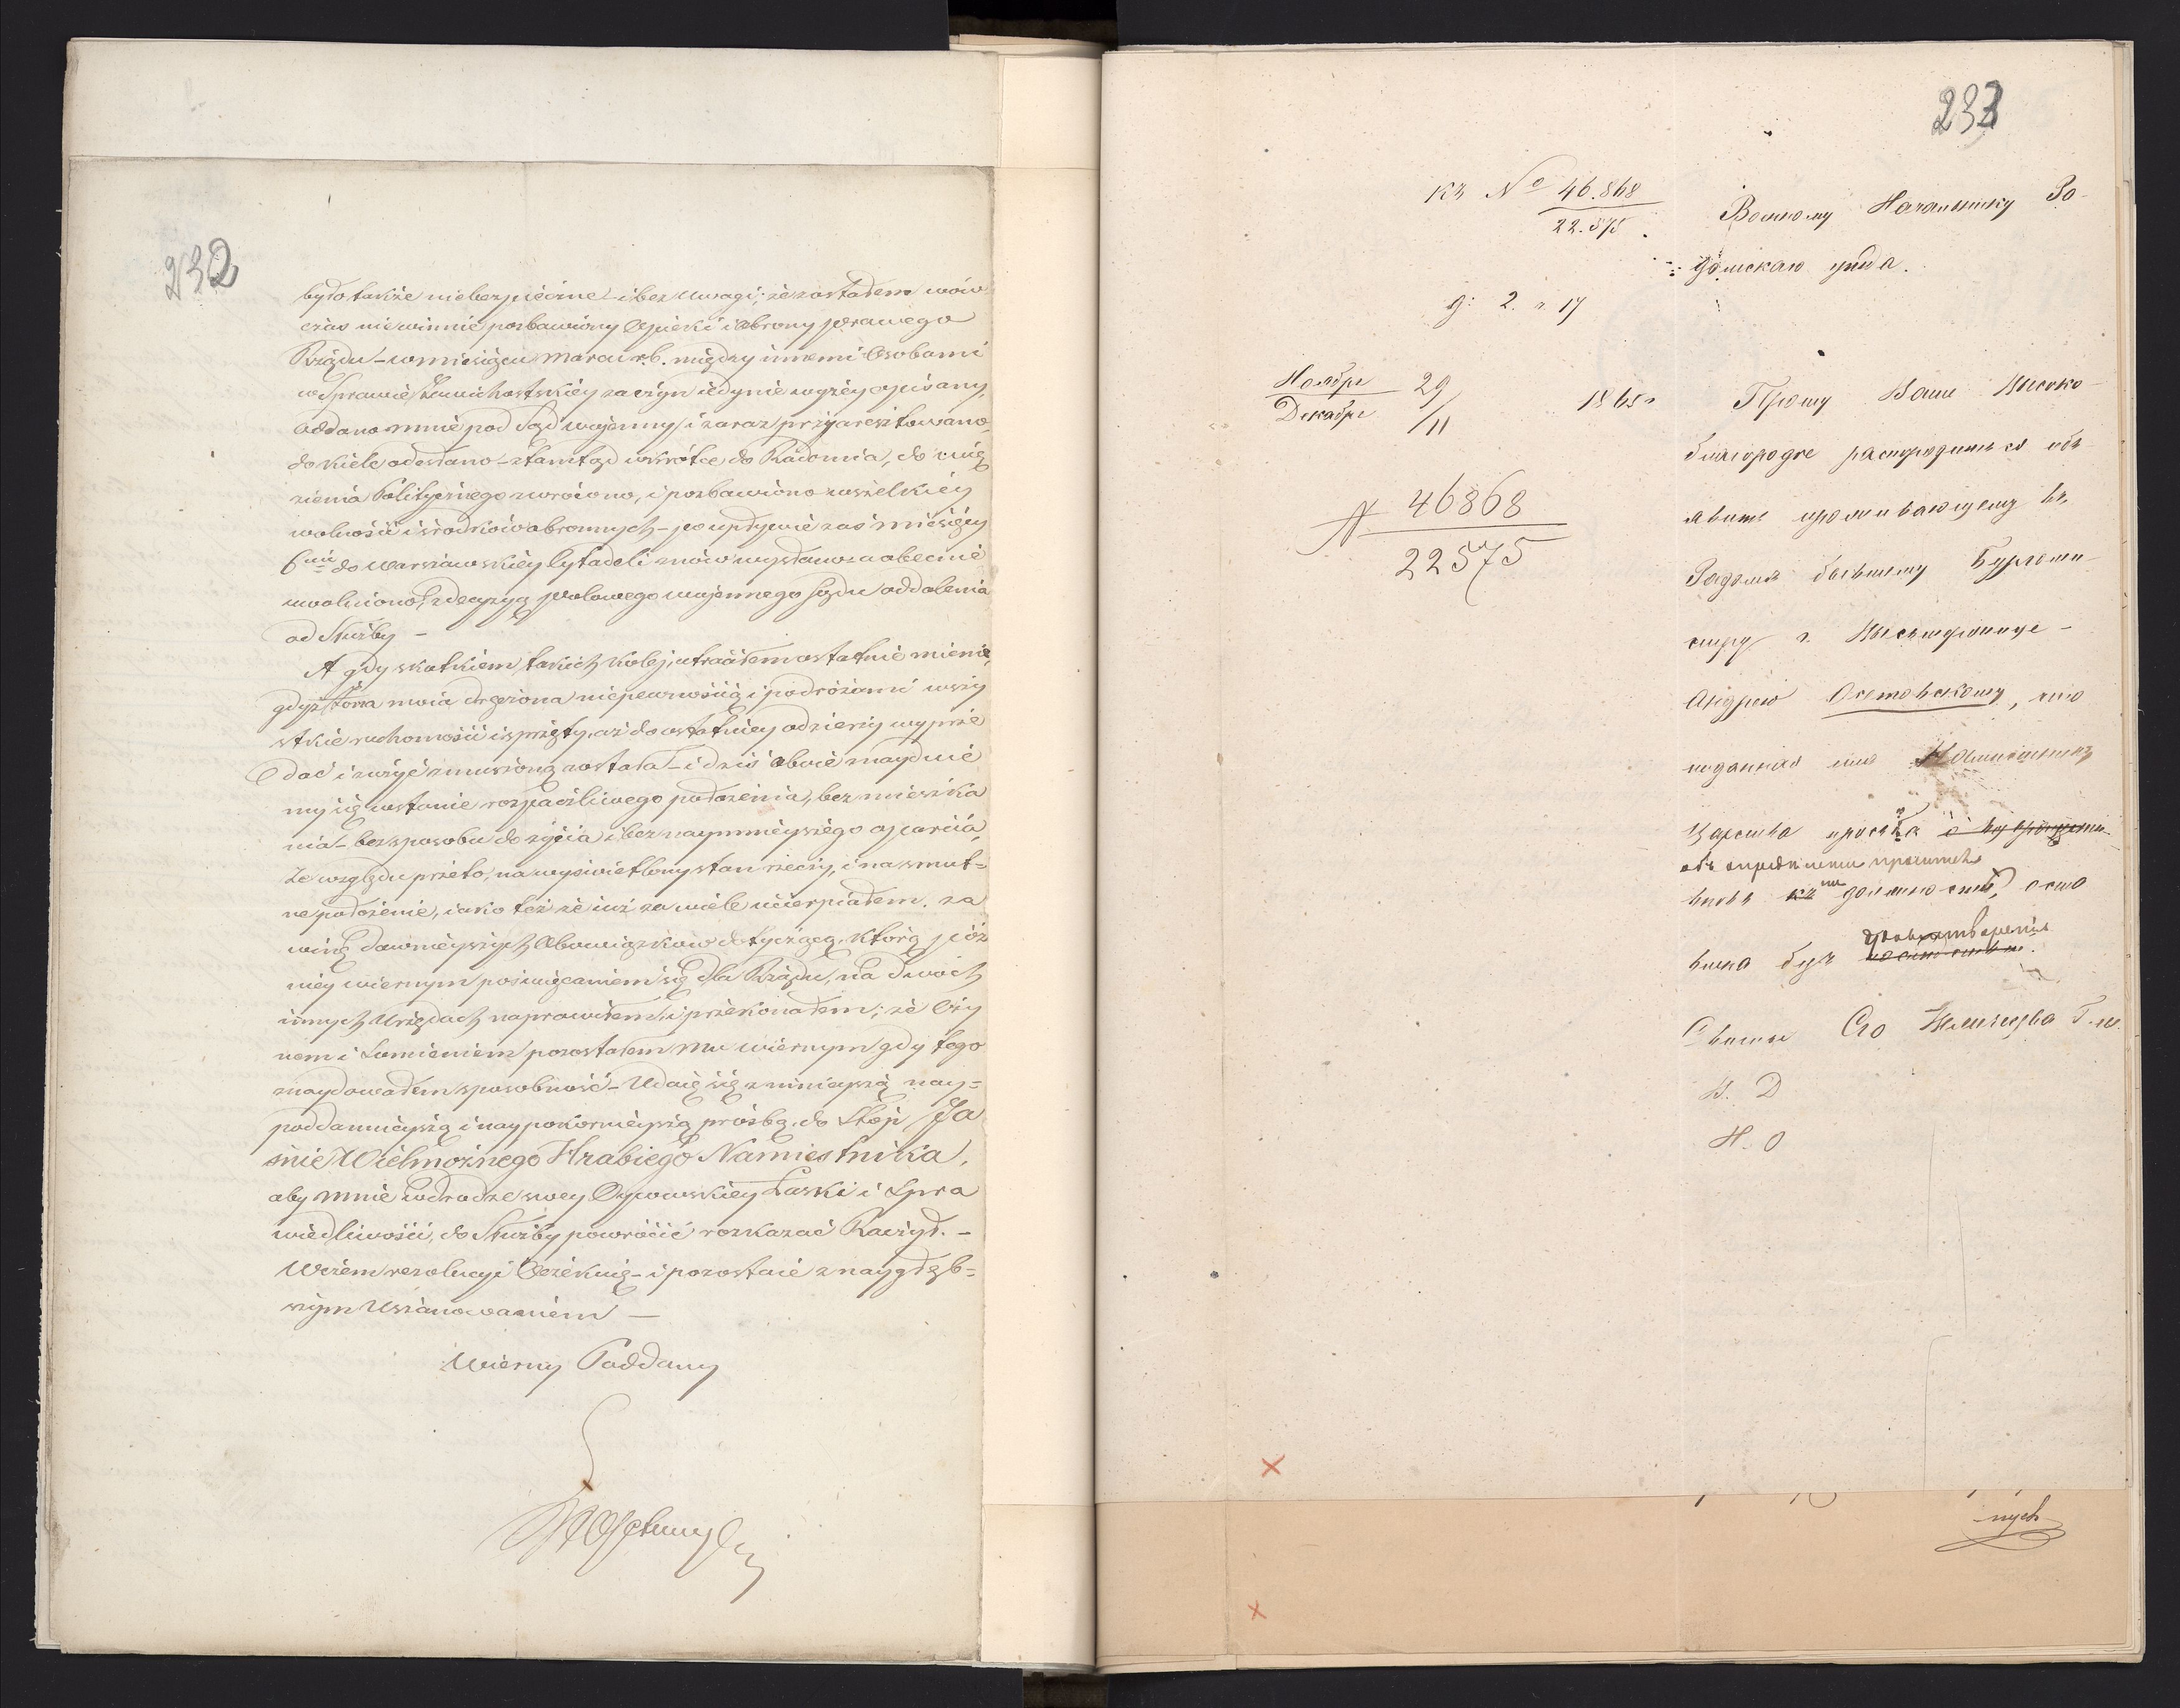 232
było także niebezpieczne i bez uwagi; że zostałem wów
czas niewinnie pozbawiony Opieki i obrony prawego
Rządu – w miesiącu marcu r.b. między innemi Osobami
w Sprawie Zawichostskiéy za czyn iedynie wyżéy opisany,
oddano mnie pod Sąd wojenny i zaraz przyaresztowano,
do Kielc odesłano – ztamtąd wkrótce do Radomia, do wię
zienia Politycznego zwrócono, i pozbawiono wszelkiéy
wolności i środków obronnych – po upływie zaś miesięcy
6ciu do Warszawskiéy Cytadeli znów wysławszy obecnie
uwolniono, z decyzyą Polowego wojennego Sądu oddalenia
od Służby –
A gdy skutkiem takich kolej, utraciłem ostatnie mienie,
gdyż żona moia dręczona niepewnością i podróżami wszy
stkie ruchomości i sprzęty, aż do ostatniey odzieży wyprze
dać i zużyć zmuszoną została – i dziś oboie znayduie
my się w stanie rozpaczliwego położenia, bez mieszka
nia – bez sposobu do życia i bez naymnieyszego oparcia,
Ze względu przeto, na wyświetlony stan rzeczy, i na smut=
ne położenie, iako też że iuż za wiele ucierpiałem, za
winę dawnieyszych Obowiązków dotyczącą, którą póź
niey wiernym poświęcaniem się dla Rządu, na dwóch
innych Urzędach naprawiłem, i przekonałem; że Czy
nem i Sumieniem pozostałem mu wiernym gdy tego
znaydowałem sposobność – Udaię się z ninieyszą nay=
poddannieyszą i naypokornieyszą prośbą, do Stóp Ja
śnie Wielmożnego Hrabiego Namiestnika,
aby mnie w drodze swey Oycowskiey Łaski i Spra
wiedliwości, do Służby powrócić rozkazać Raczył. –
W czem rezolucyi Oczekuię – i pozostaię z naygłęb=
szym Uszanowaniem –
Wierny Poddany
233
Къ № 46.868
22.575
Военному Начальнику Ра-
домскаго уѣзда.
д: 2. л 17
Ноября 29
Декабря 11
1865 г
№ 46868
22575
Прошу Ваше Высоко-
благородіе распорядиться объ
явить проживающему въ
Радомѣ бывшему Бургоми
стру г.
Андрею Осетовскому, что
поданная имъ Намѣстнику
Царства просьба о
объ опредѣленіи просителя
вновь къ должности, оста
влена безъ удовлетворенія
Свиты Его Величества Г.-м.
В. Д
Н. О
nych